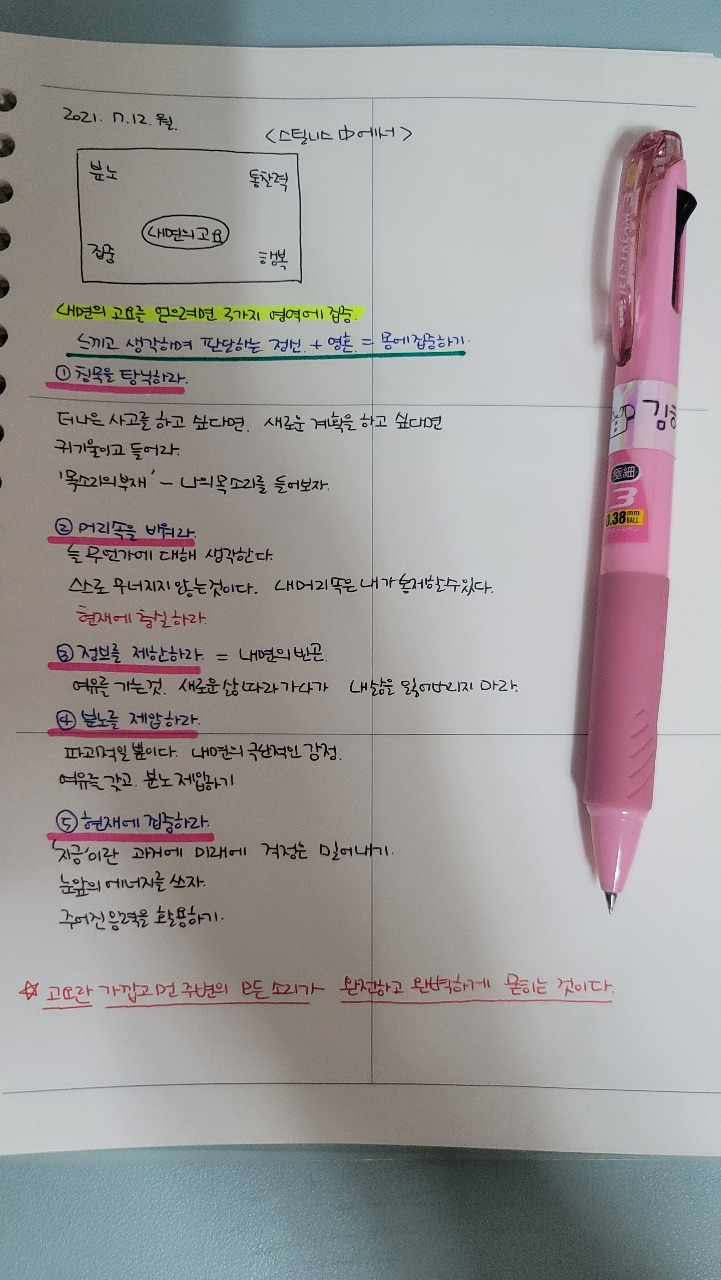 2021. 7.12. 월.
<스틸니스 中에서>
분노
통찰력
내면의 고요
집중
행복
내면의 고요를 얻으려면 3가지 영역에 집중.
느끼고 생각하며 판단하는 정신. + 영혼. = 몸에 집중하기.
① 침묵을 탐닉하라.
더 나은 사고를 하고 싶다면. 새로운 계획을 하고 싶다면
귀 기울이고 들어라.
'목소리의 부재' - 나의 목소리를 들어보자.
② 머리속을 비워라.
늘 무언가에 대해 생각한다.
스스로 무너지지 않는 것이다. 내 머리 속은 내가 통제할 수 있다.
현재에 충실하라.
③ 정보를 제한하라. = 내면의 빈곤.
여유를 가는것. 새로운 삶 따라가다가 내 삶을 잃어버리지 마라.
④ 분노를 제압하라.
파괴적일 뿐이다. 내면의 극단적인 감정.
여유를 갖고. 분노 제압하기
⑤ 현재에 집중하라.
'지금'이란 과거에 미래에 걱정은 밀어내기.
눈앞의 에너지를 쓰자.
주어진 능력을 활용하기.
☆ 고요란 가깝고 먼 주변의 모든 소리가 완전하고 완벽하게 묻히는 것이다.
김
極細
3
0.38mm
BALL